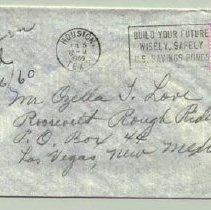 HOUSTON,
12 - M
1960
TEX.
BUILD YOUR FUTURE
WISELY, SAFELY
U.S. SAVINGS BONDS
6/60
Mr. Ozella T. Love
Roosevelt Rough Rid
P.O. Box 44
Las Vegas, New Mex